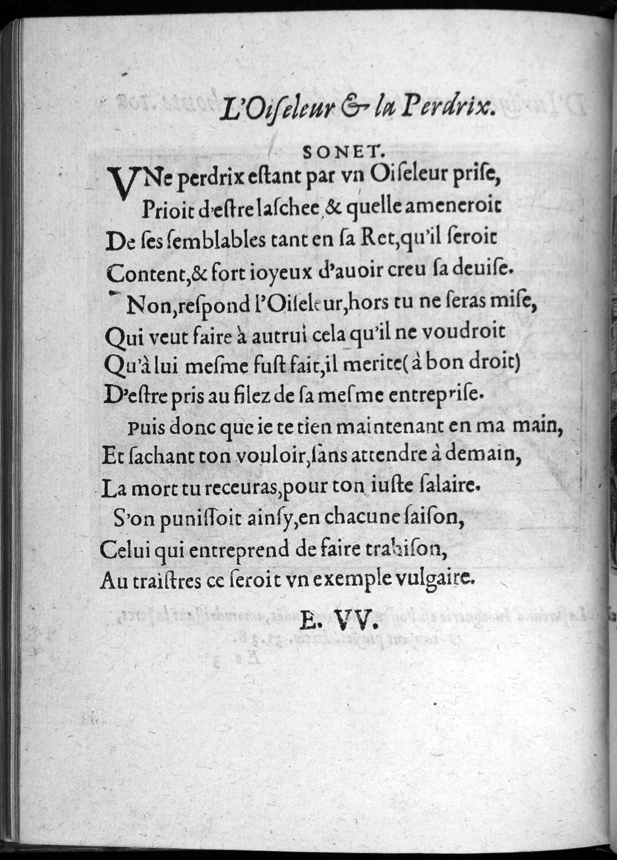 L'Oiſeleur & la Perdrix.
SONET.
VNe perdrix eſtant par vn Oiſeleur priſe,
Prioit d'eſtre laſchee, & quelle ameneroit
De ſes ſemblables tant en ſa Ret, qu'il ſeroit
Content, & fort ioyeux d'auoir creu ſa deuiſe.
Non, reſpond l'Oiſeleur, hors tu ne ſeras miſe,
Qui veut faire à autrui cela qu'il ne voudroit
Qu'à lui meſme fuſt fait, il merite (à bon droit)
D'eſtre pris au filez de ſa meſme entrepriſe.
Puis donc que ie te tien maintenant en ma main,
Et ſachant ton vouloir, ſans attendre à demain,
La mort tu receuras, pour ton iuſte ſalaire.
S'on puniſſoit ainſy, en chacune ſaiſon,
Celui qui entreprend de faire trahiſon,
Au traiſtres ce ſeroit vn exemple vulgaire.
E. VV.